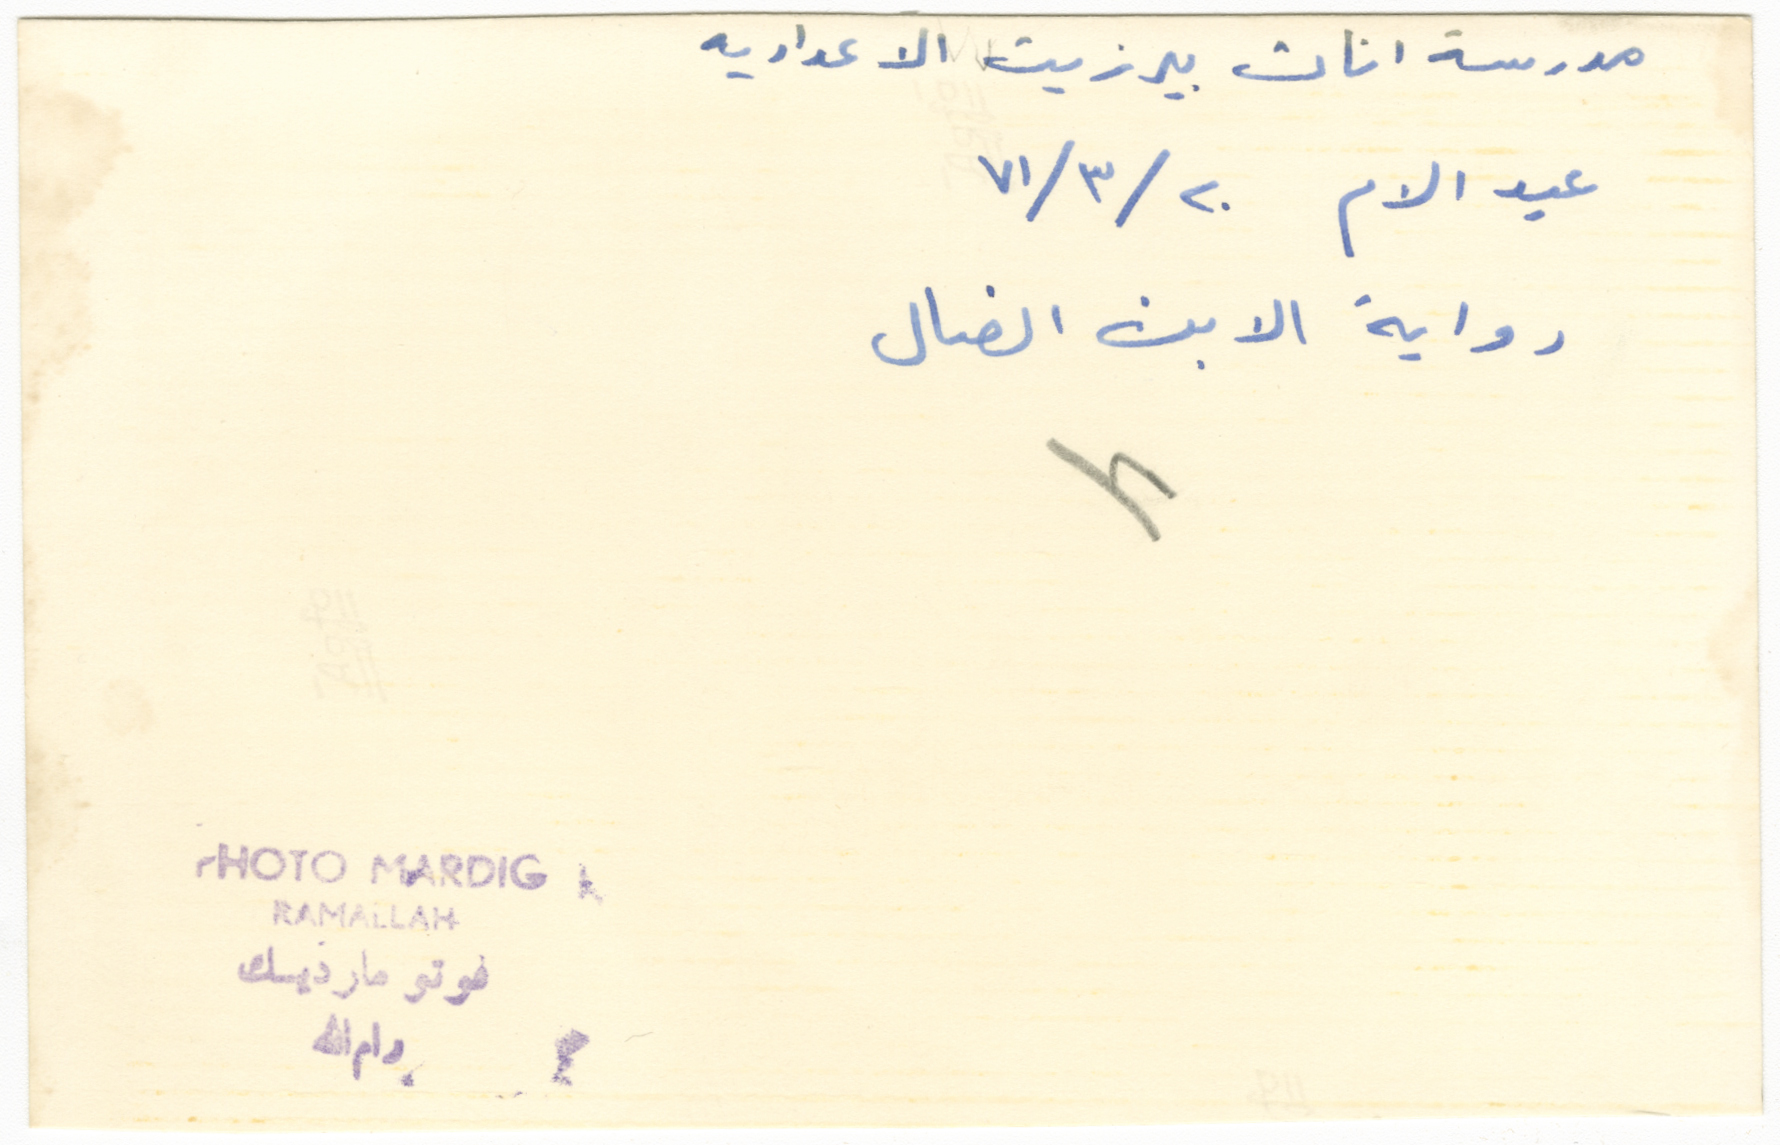 مدرسة اناث بيرزيت الاعداديه
عيد الام ٢٠/٣/٧١
رواية الابن الضال
PHOTO MARDIG
RAMALLAH
فوتو مارديك
رام الله